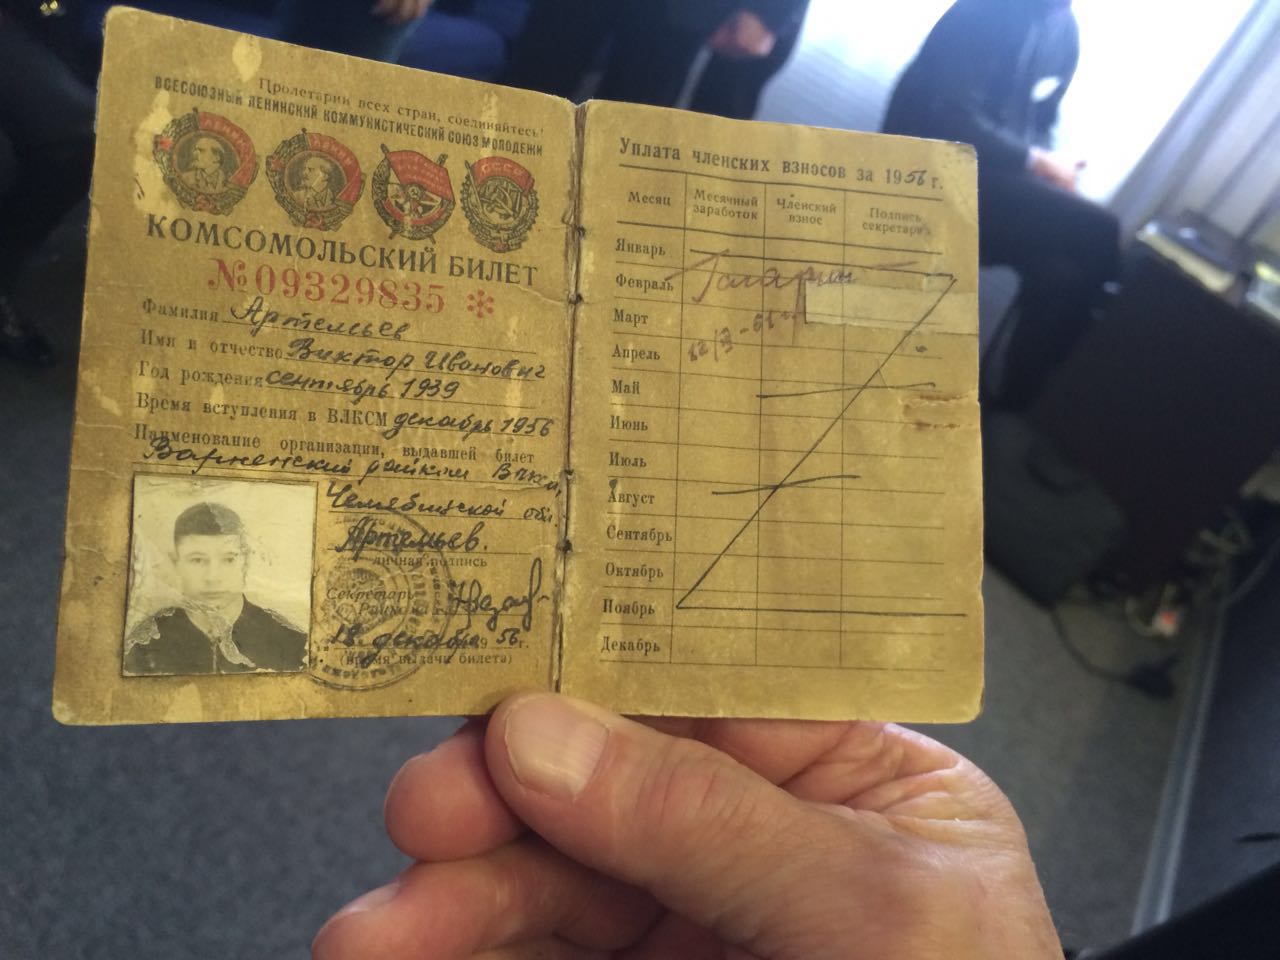 Пролетарии всех стран, соединяйтесь!
ВСЕСОЮЗНЫЙ ЛЕНИНСКИЙ КОММУНИСТИЧЕСКИЙ СОЮЗ МОЛОДЕЖИ
КОМСОМОЛЬСКИЙ БИЛЕТ
№ 09329835 *
Фамилия Артемьев
Имя и отчество Виктор Иванович
Год рождения сентябрь 1939
Время вступления в ВЛКСМ декабрь 1956
Наименование организации, выдавшей билет
Варненский райком ВЛКСМ,
Челябинской обл.
Артемьев.
личная подпись
Секретарь
Райкома
18 декабря 1956 г.
(время выдачи билета)
Уплата членских взносов за 1956 г.
Месяц Месячный заработок Членский взнос Подпись секретаря
Январь
Февраль Гагарин
Март
12/IV-61 г.
Апрель
Май
Июнь
Июль
Август
Сентябрь
Октябрь
Ноябрь
Декабрь